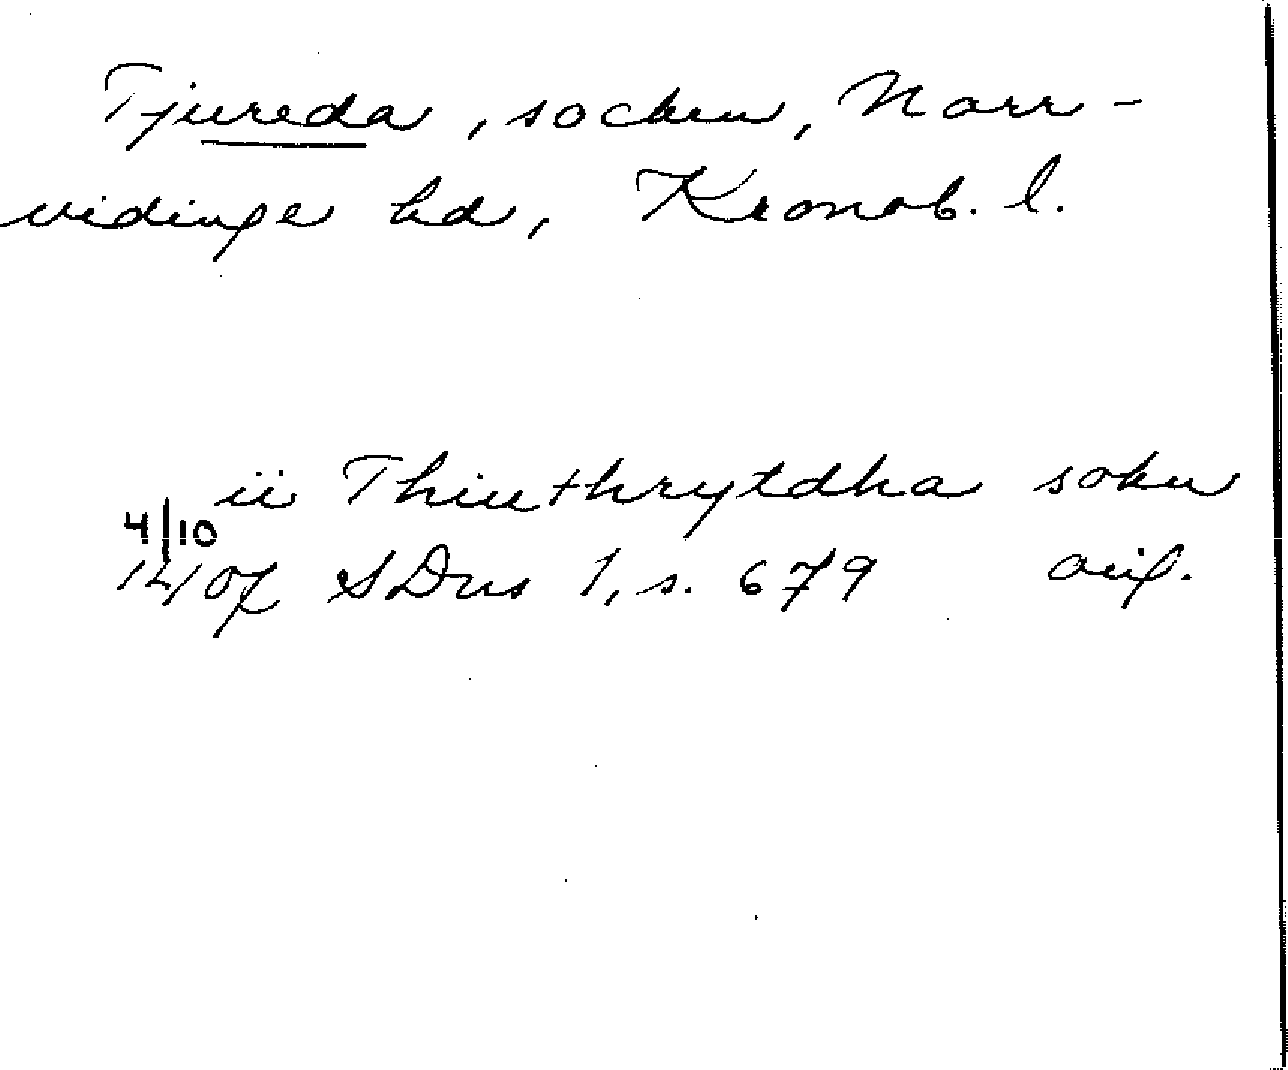 Tjureda, socken, Norr-
vidinge hd, Kronob. l.
ii Thiuthrytdha sokn
4/10
1407 SDns 1, s. 679 orig.